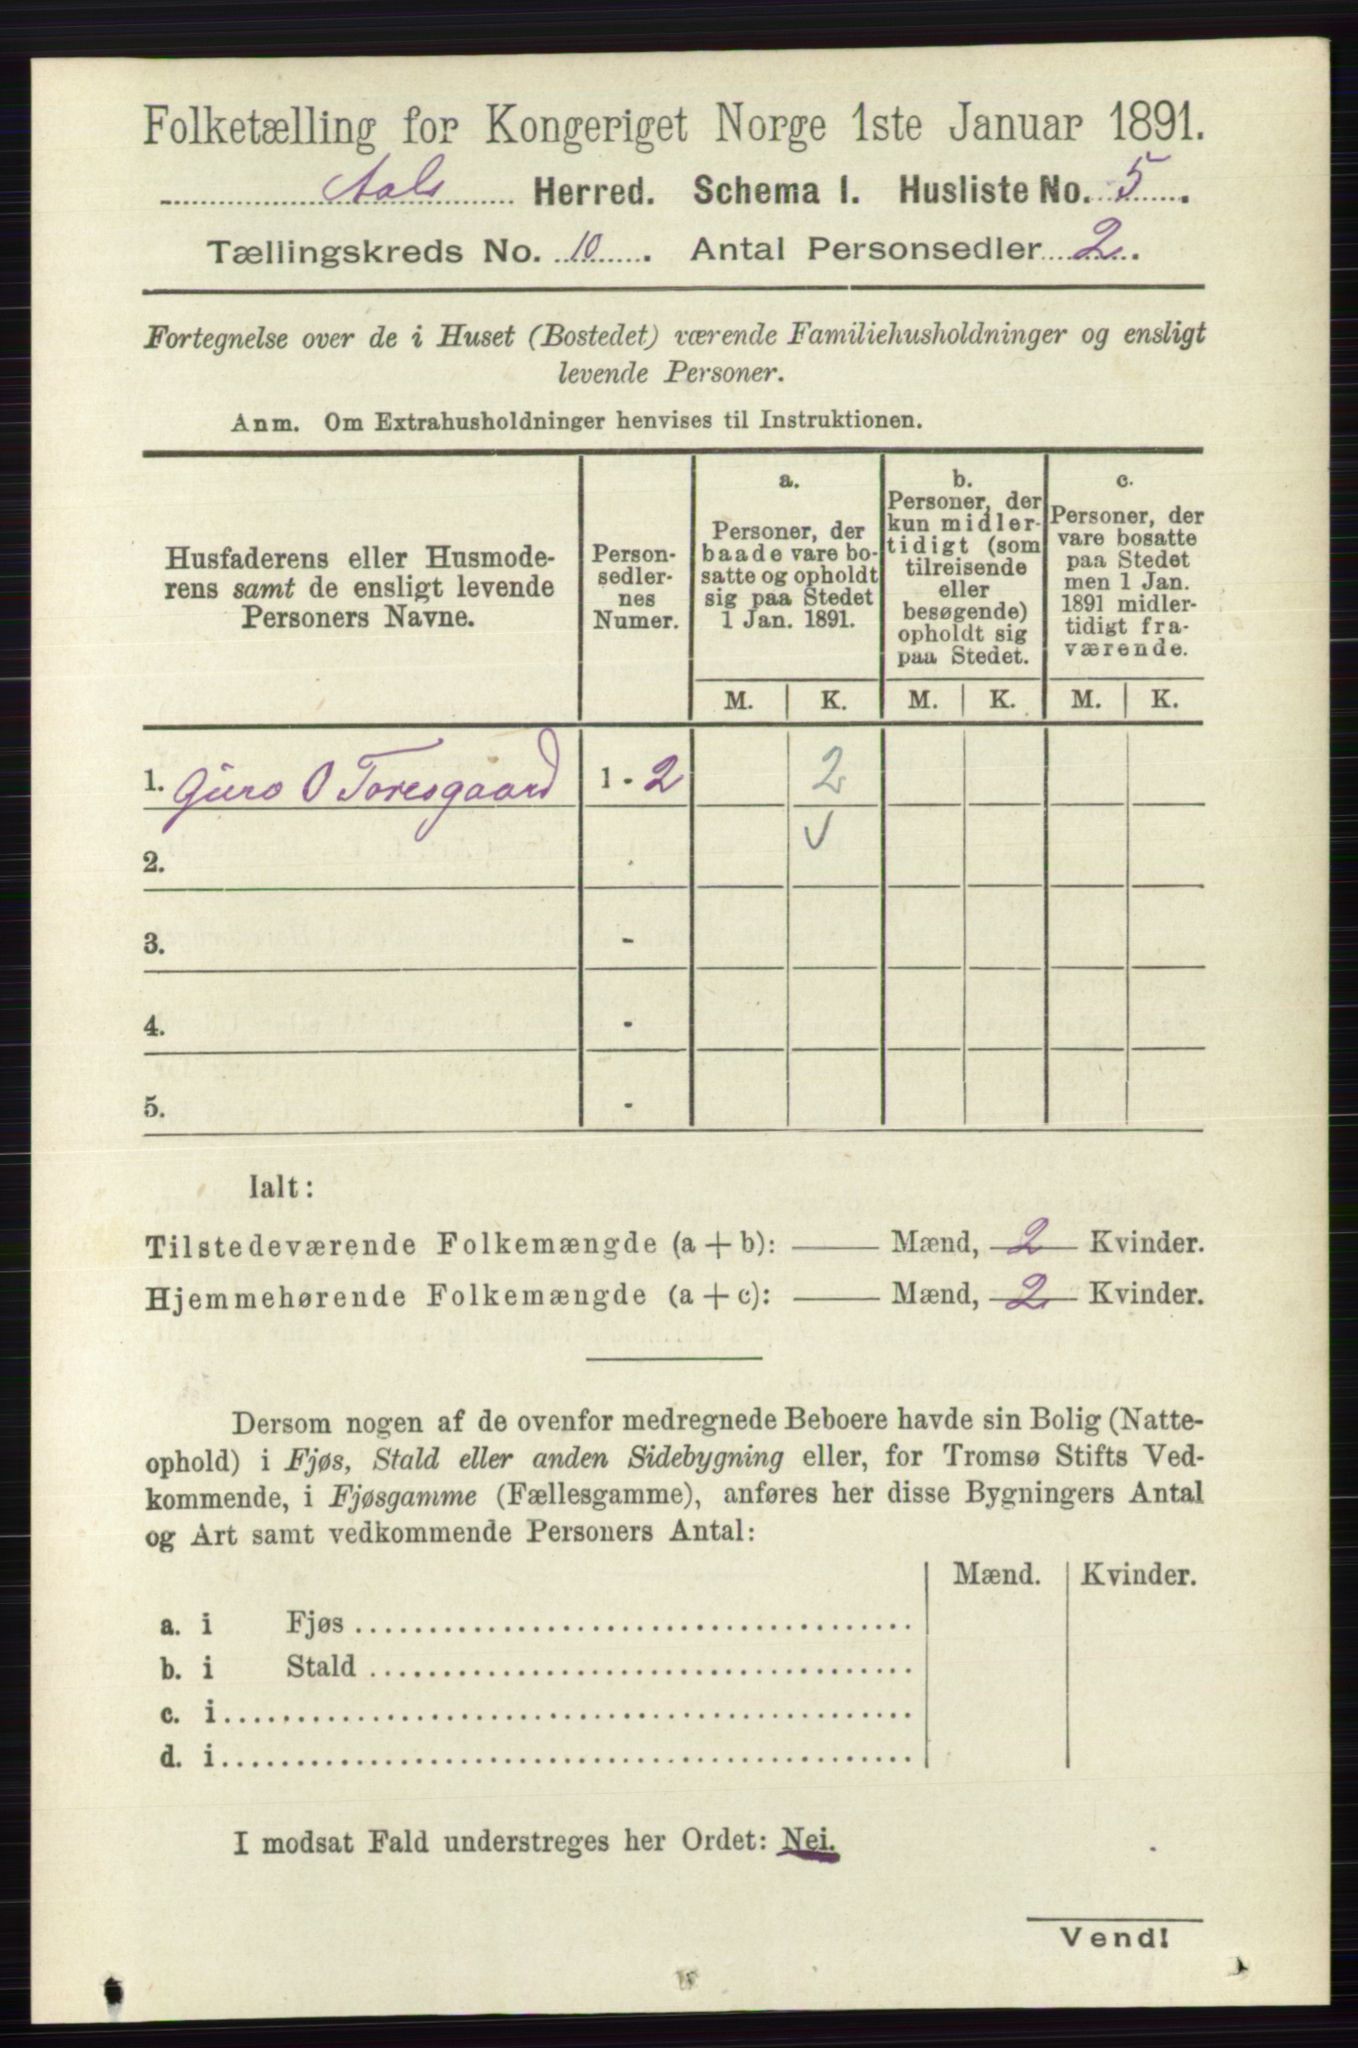 Folketælling for Kongeriget Norge 1ste Januar 1891.
Aals Herred. Schema I. Husliste No. 5.
Tællingskreds No. 10. Antal Personsedler 2.
Fortegnelse over de i Huset (Bostedet) værende Familiehusholdninger og ensligt
levende Personer.
Anm. Om Extrahusholdninger henvises til Instruktionen.
Husfaderens eller Husmode-
rens samt de ensligt levende
Personers Navne.
Person-
sedler-
nes
Numer.
a.
Personer, der
baade vare bo-
satte og opholdt
sig paa Stedet
1 Jan. 1891.
b.
Personer, der
kun midler-
tidigt (som
tilreisende
eller
besøgende)
opholdt sig
paa Stedet.
c.
Personer, der
vare bosatte
paa Stedet
men 1 Jan.
1891 midler-
tidigt fra-
værende.
M. K. M. K. M. K.
1. Guro O Toresgaard 1 - 2 2
2.
3. -
4. -
5. -
Ialt:
Tilstedeværende Folkemængde (a + b): — Mænd, 2 Kvinder.
Hjemmehørende Folkemængde (a + c): — Mænd, 2 Kvinder.
Dersom nogen af de ovenfor medregnede Beboere havde sin Bolig (Natte-
ophold) i Fjøs, Stald eller anden Sidebygning eller, for Tromsø Stifts Ved-
kommende, i Fjøsgamme (Fællesgamme), anføres her disse Bygningers Antal
og Art samt vedkommende Personers Antal:
Mænd. Kvinder.
a. i Fjøs
b. i Stald
c. i
d. i
I modsat Fald understreges her Ordet: Nei.
Vend!